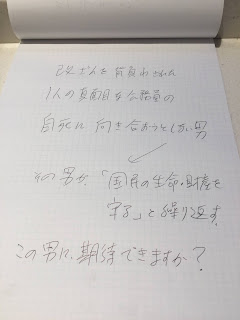 改ざんを背負わされた
1人の真面目な公務員の
自死に向き合おうとしない男
その男が、「国民の生命・財産を
守る」と繰り返す。
この男に、期待できますか？